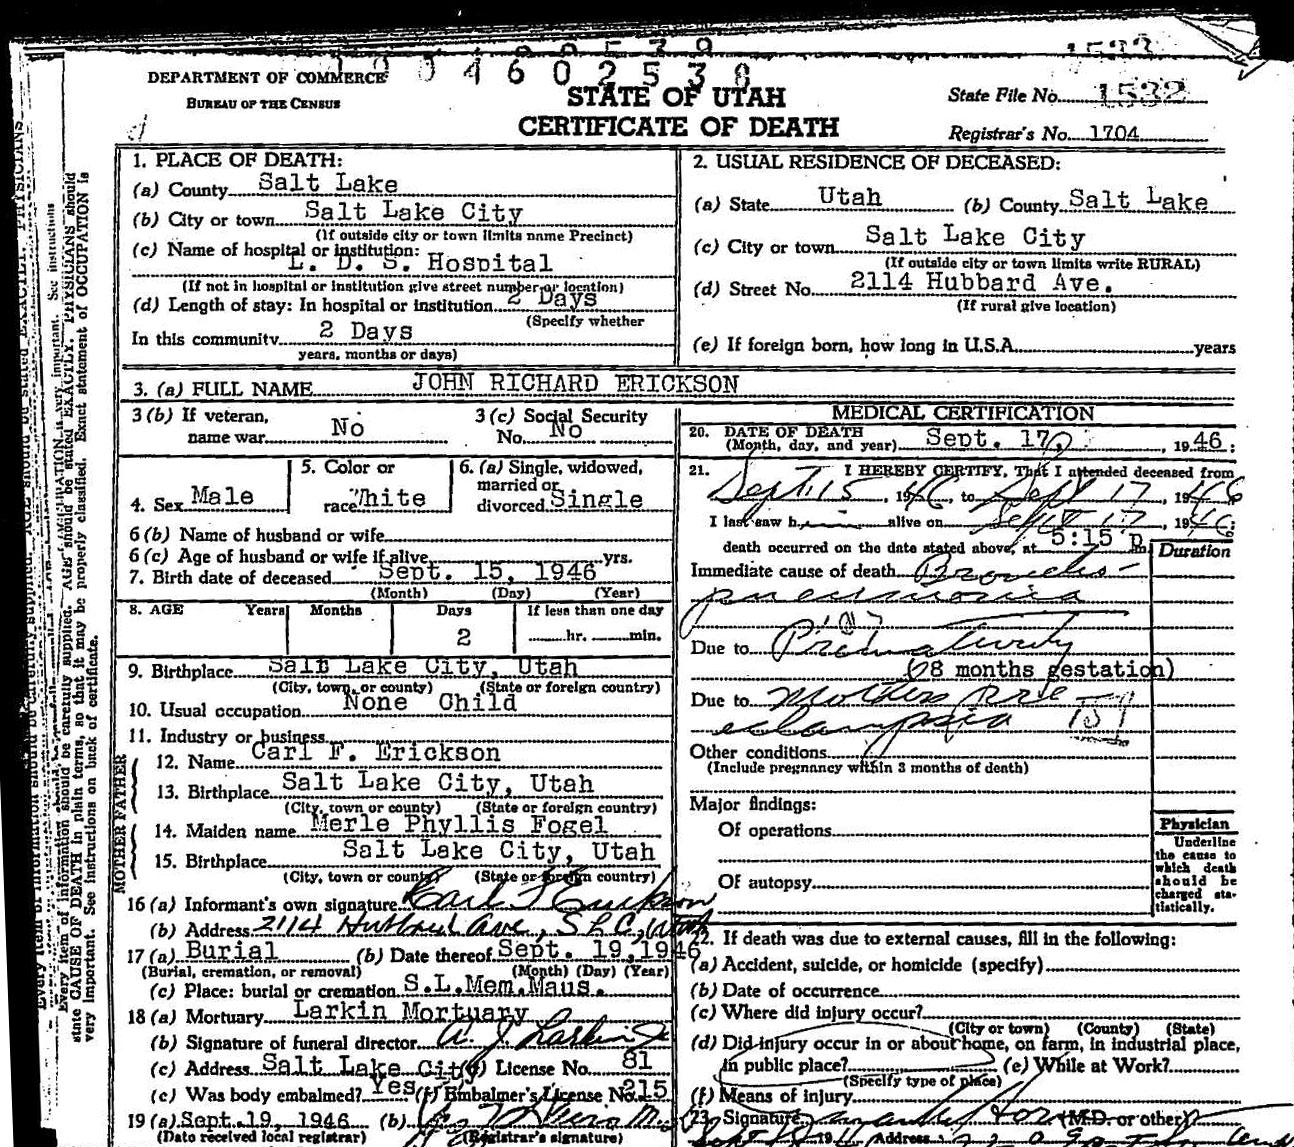 1532
DEPARTMENT OF COMMERCE
BUREAU OF THE CENSUS
STATE OF UTAH
CERTIFICATE OF DEATH
State File No. 1532
Registrar's No. 1704
1. PLACE OF DEATH:
(a) County Salt Lake
(b) City or town Salt Lake City
(If outside city or town limits name Precinct)
(c) Name of hospital or institution:
L. D. S. Hospital
(If not in hospital or institution give street number or location)
(d) Length of stay: In hospital or institution 2 Days
(Specify whether
In this community 2 Days
years, months or days)
2. USUAL RESIDENCE OF DECEASED:
(a) State Utah (b) County Salt Lake
(c) City or town Salt Lake City
(If outside city or town limits write RURAL)
(d) Street No. 2114 Hubbard Ave.
(If rural give location)
(e) If foreign born, how long in U.S.A. years
3. (a) FULL NAME JOHN RICHARD ERICKSON
3 (b) If veteran, name war No
3 (c) Social Security No. No
4. Sex Male
5. Color or race White
6. (a) Single, widowed, married or divorced Single
6 (b) Name of husband or wife
6 (c) Age of husband or wife if alive yrs.
7. Birth date of deceased Sept. 15, 1946
(Month) (Day) (Year)
8. AGE Years Months Days If less than one day
2 hr. min.
9. Birthplace Salt Lake City, Utah
(City, town, or county) (State or foreign country)
10. Usual occupation None Child
11. Industry or business
FATHER
12. Name Carl F. Erickson
13. Birthplace Salt Lake City, Utah
(City, town or county) (State or foreign country)
MOTHER
14. Maiden name Merle Phyllis Fogel
15. Birthplace Salt Lake City, Utah
(City, town or county) (State or foreign country)
16 (a) Informant's own signature Carl F Erickson
(b) Address 2114 Hubbard Ave, S L C, Utah
17 (a) Burial (b) Date thereof Sept. 19, 1946
(Burial, cremation, or removal) (Month) (Day) (Year)
(c) Place: burial or cremation S.L.Mem.Maus.
18 (a) Mortuary Larkin Mortuary
(b) Signature of funeral director
(c) Address Salt Lake City License No. 81
(e) Was body embalmed? Yes (f) Embalmer's License No. 215
19 (a) Sept.19, 1946 (b)
(Date received local registrar) (Registrar's signature)
MEDICAL CERTIFICATION
20. DATE OF DEATH
(Month, day, and year) Sept. 17, 1946
21. I HEREBY CERTIFY, That I attended deceased from
Sept. 15, 1946, to Sept 17, 1946
I last saw him alive on Sept 17, 1946;
death occurred on the date stated above, at 5:15 p m
Duration
Immediate cause of death Broncho-
pneumonia
Due to Prematurity
(8 months gestation)
Due to Mothers pre
eclampsia
Other conditions
(Include pregnancy within 3 months of death)
Major findings:
Of operations
Of autopsy
Physician
Underline
the cause to
which death
should be
charged sta-
tistically.
22. If death was due to external causes, fill in the following:
(a) Accident, suicide, or homicide (specify)
(b) Date of occurrence
(c) Where did injury occur?
(City or town) (County) (State)
(d) Did injury occur in or about home, on farm, in industrial place,
in public place? (e) While at Work?
(Specify type of place)
(f) Means of injury
23. Signature (M.D. or other)
Address